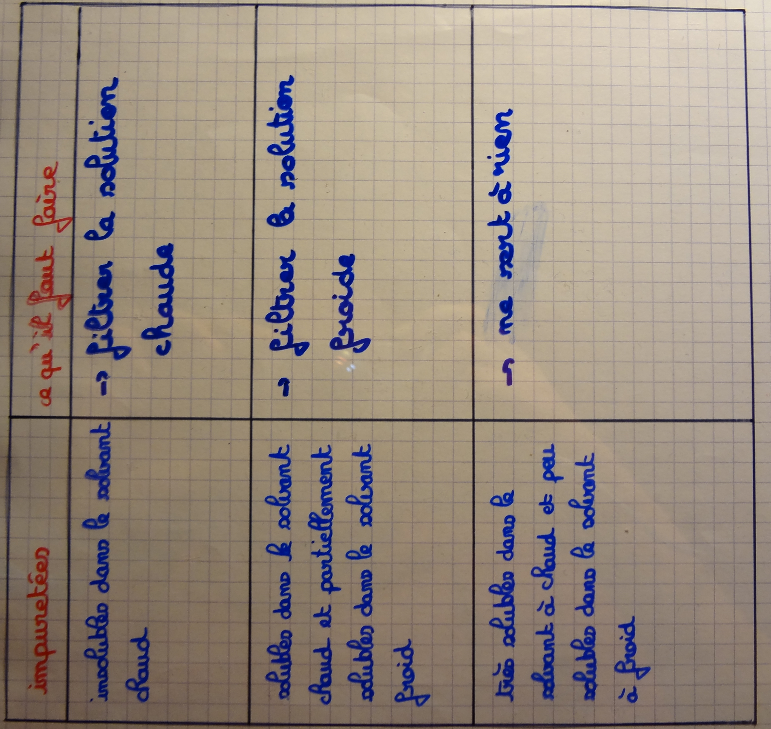 impuretées
ce qu'il faut faire
insolubles dans le solvant
chaud
→ filtrer la solution
chaude
solubles dans le solvant
chaud et partiellement
solubles dans le solvant
froid
→ filtrer la solution
froide
très solubles dans le
solvant à chaud et peu
solubles dans le solvant
à froid
→ ne sert à rien